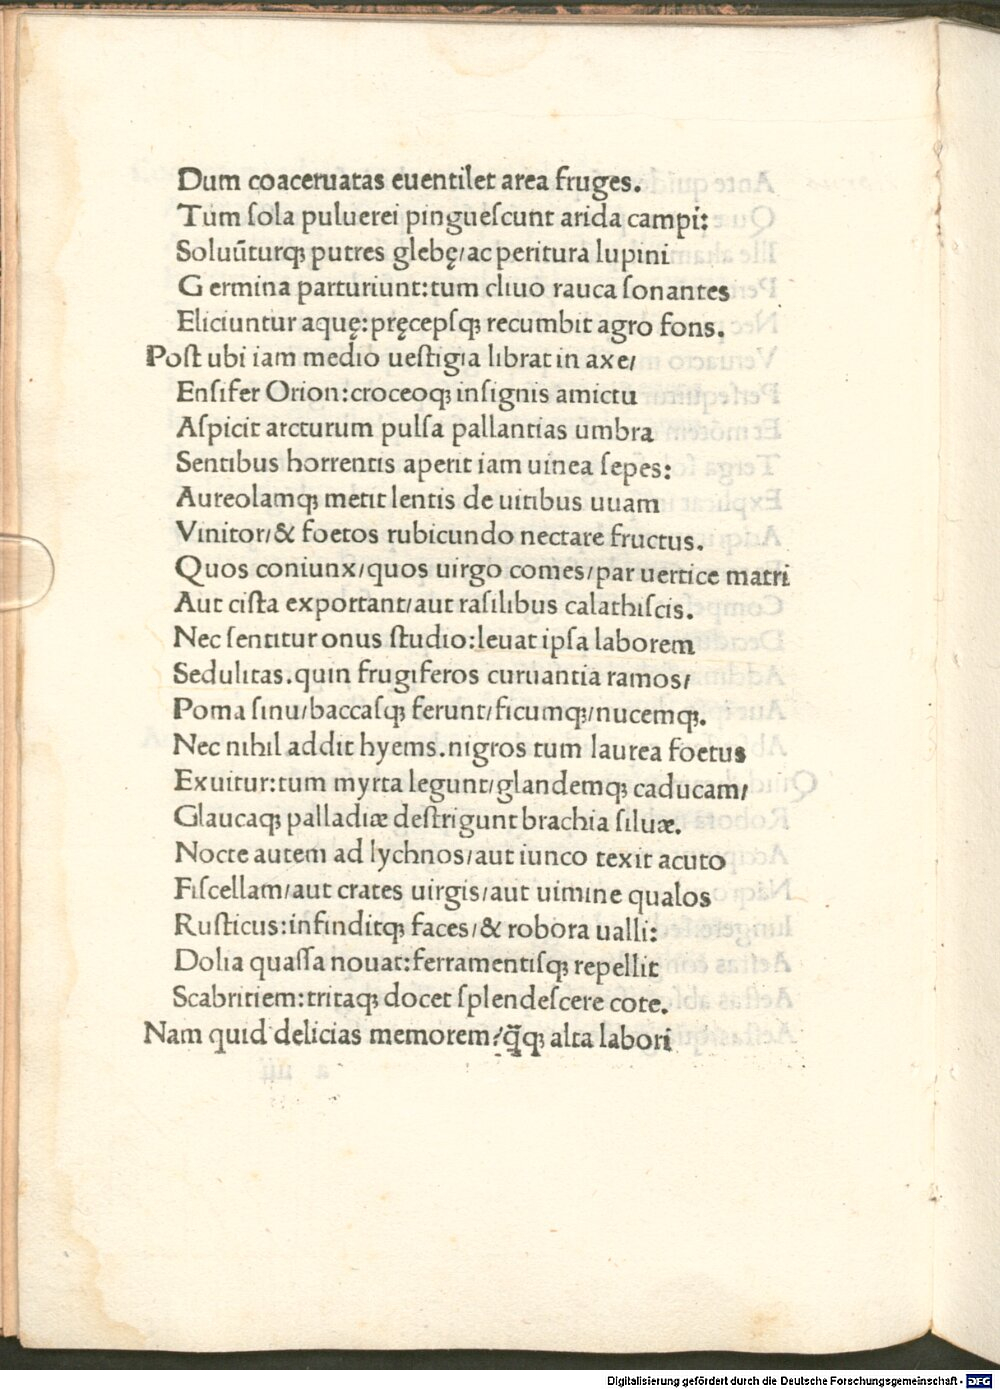 Dum coaceruatas euentilet area fruges.
Tum ſola puluerei pingueſcunt arida campi:
Soluũturqꝫ putres glebę/ac peritura lupini
Germina parturiunt:tum cliuo rauca ſonantes
Eliciuntur aquę:pręcepſqꝫ recumbit agro fons.
Poſt ubi iam medio ueſtigia librat in axe/
Enſifer Orion:croceoqꝫ inſignis amictu
Aſpicit arcturum pulſa pallantias umbra
Sentibus horrentis aperit iam uinea ſepes:
Aureolamqꝫ metit lentis de uitibus uuam
Vinitor/& foetos rubicundo nectare fructus.
Quos coniunx/quos uirgo comes/par uertice matri
Aut ciſta exportant/aut raſilibus calathiſcis.
Nec ſentitur onus ſtudio:leuat ipſa laborem
Sedulitas.quin frugiferos curuantia ramos/
Poma ſinu/baccaſqꝫ ferunt/ficumqꝫ/nucemqꝫ.
Nec nihil addit hyems.nigros tum laurea foetus
Exuitur:tum myrta legunt/glandemqꝫ caducam/
Glaucaqꝫ palladiæ deſtrigunt brachia ſiluæ.
Nocte autem ad lychnos/aut iunco texit acuto
Fiſcellam/aut crates uirgis/aut uimine qualos
Ruſticus:infinditqꝫ faces/& robora ualli:
Dolia quaſſa nouat:ferramentiſqꝫ repellit
Scabritiem:tritaqꝫ docet ſplendeſcere cote.
Nam quid delicias memorem?q̃qꝫ alta labori
Digitalisierung gefördert durch die Deutsche Forschungsgemeinschaft - DFG